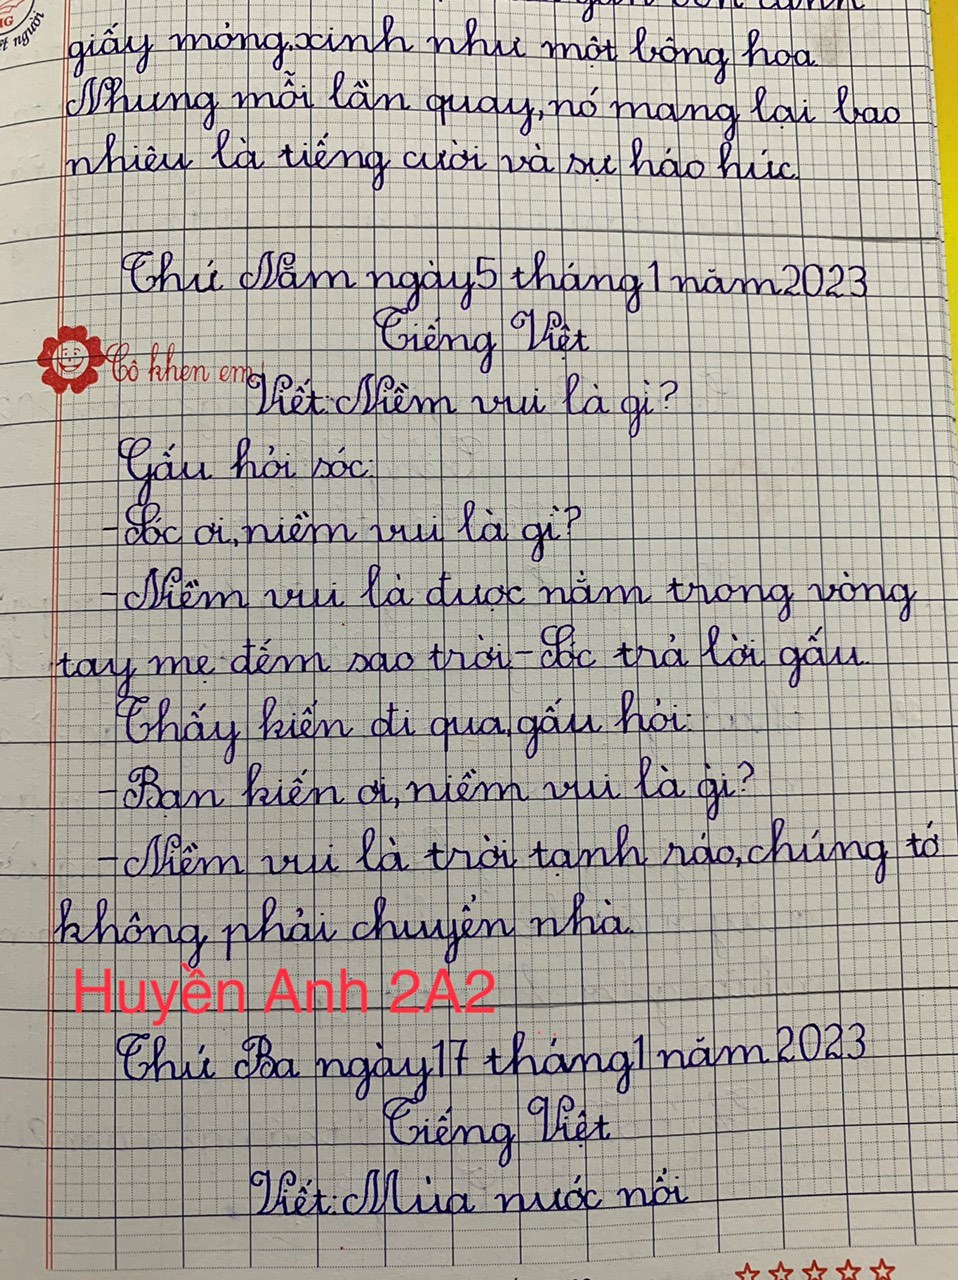 giấy mỏng, xinh như một bông hoa.
Nhưng mỗi lần quay, nó mang lại bao
nhiêu là tiếng cười và sự háo hức.
Thứ Năm ngày 5 tháng 1 năm 2023
Tiếng Việt
Cô khen em
Viết: Niềm vui là gì?
Gấu hỏi sóc:
- Sóc ơi, niềm vui là gì?
- Niềm vui là được nằm trong vòng
tay mẹ đếm sao trời - Sóc trả lời gấu.
Thấy kiến đi qua, gấu hỏi:
- Bạn kiến ơi, niềm vui là gì?
- Niềm vui là trời tạnh ráo, chúng tớ
không phải chuyển nhà.
Huyền Anh 2A2
Thứ Ba ngày 17 tháng 1 năm 2023
Tiếng Việt
Viết: Mùa nước nổi